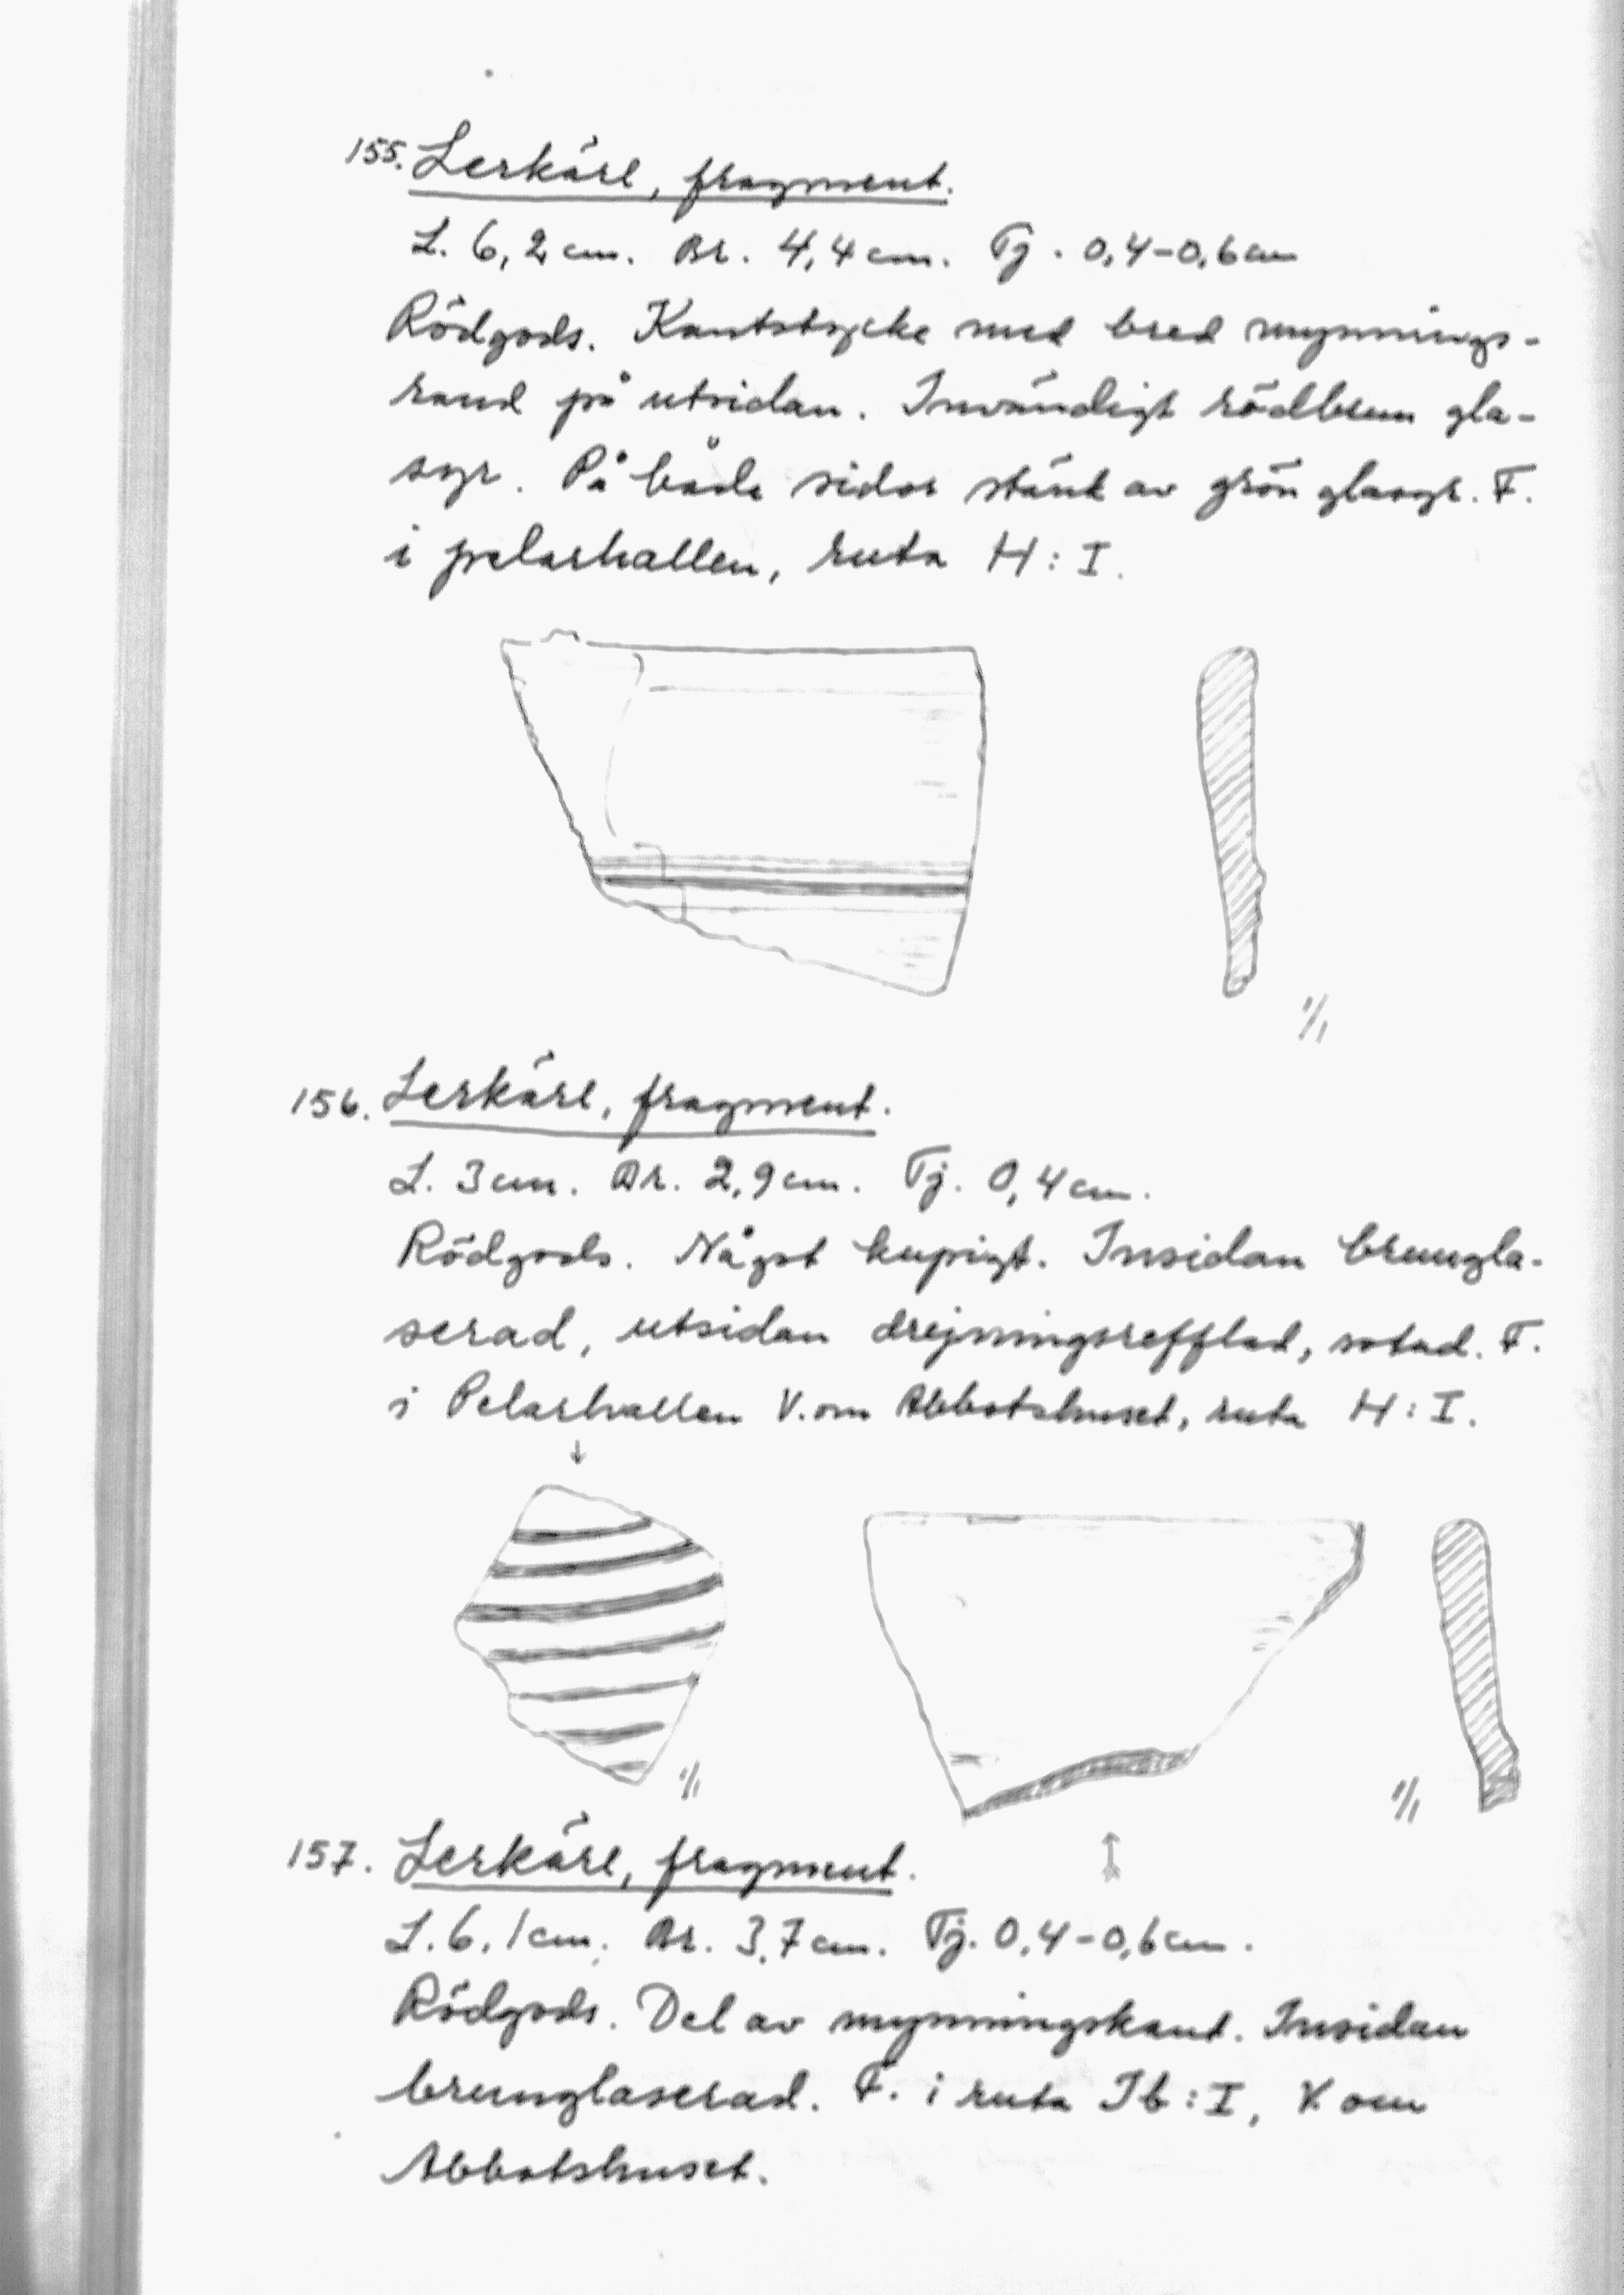 155. Lerkärl, fragment.
L. 6,2 cm. Br. 4,4 cm. Tj. 0,4-0,6 cm
Rödgods. Kantstycke med bred mynnings-
rand på utsidan. Invändigt rödbrun gla-
syr. På båda sidor stänk av grön glasyr. F.
i pelarhallen, ruta H:I.
1/1
156. Lerkärl, fragment.
L. 3 cm. Br. 2,9 cm. Tj. 0,4 cm.
Rödgods. Något kupigt. Insidan brungla-
serad, utsidan drejningsrefflad, sotad. F.
i Pelarhallen V. om Abbotshuset, ruta H:I.
1/1
1/1
157. Lerkärl, fragment.
L. 6,1 cm. Br. 3,7 cm. Tj. 0,4-0,6 cm.
Rödgods. Del av mynningskant. Insidan
brunglaserad. F. i ruta Ib:I, V. om
Abbotshuset.